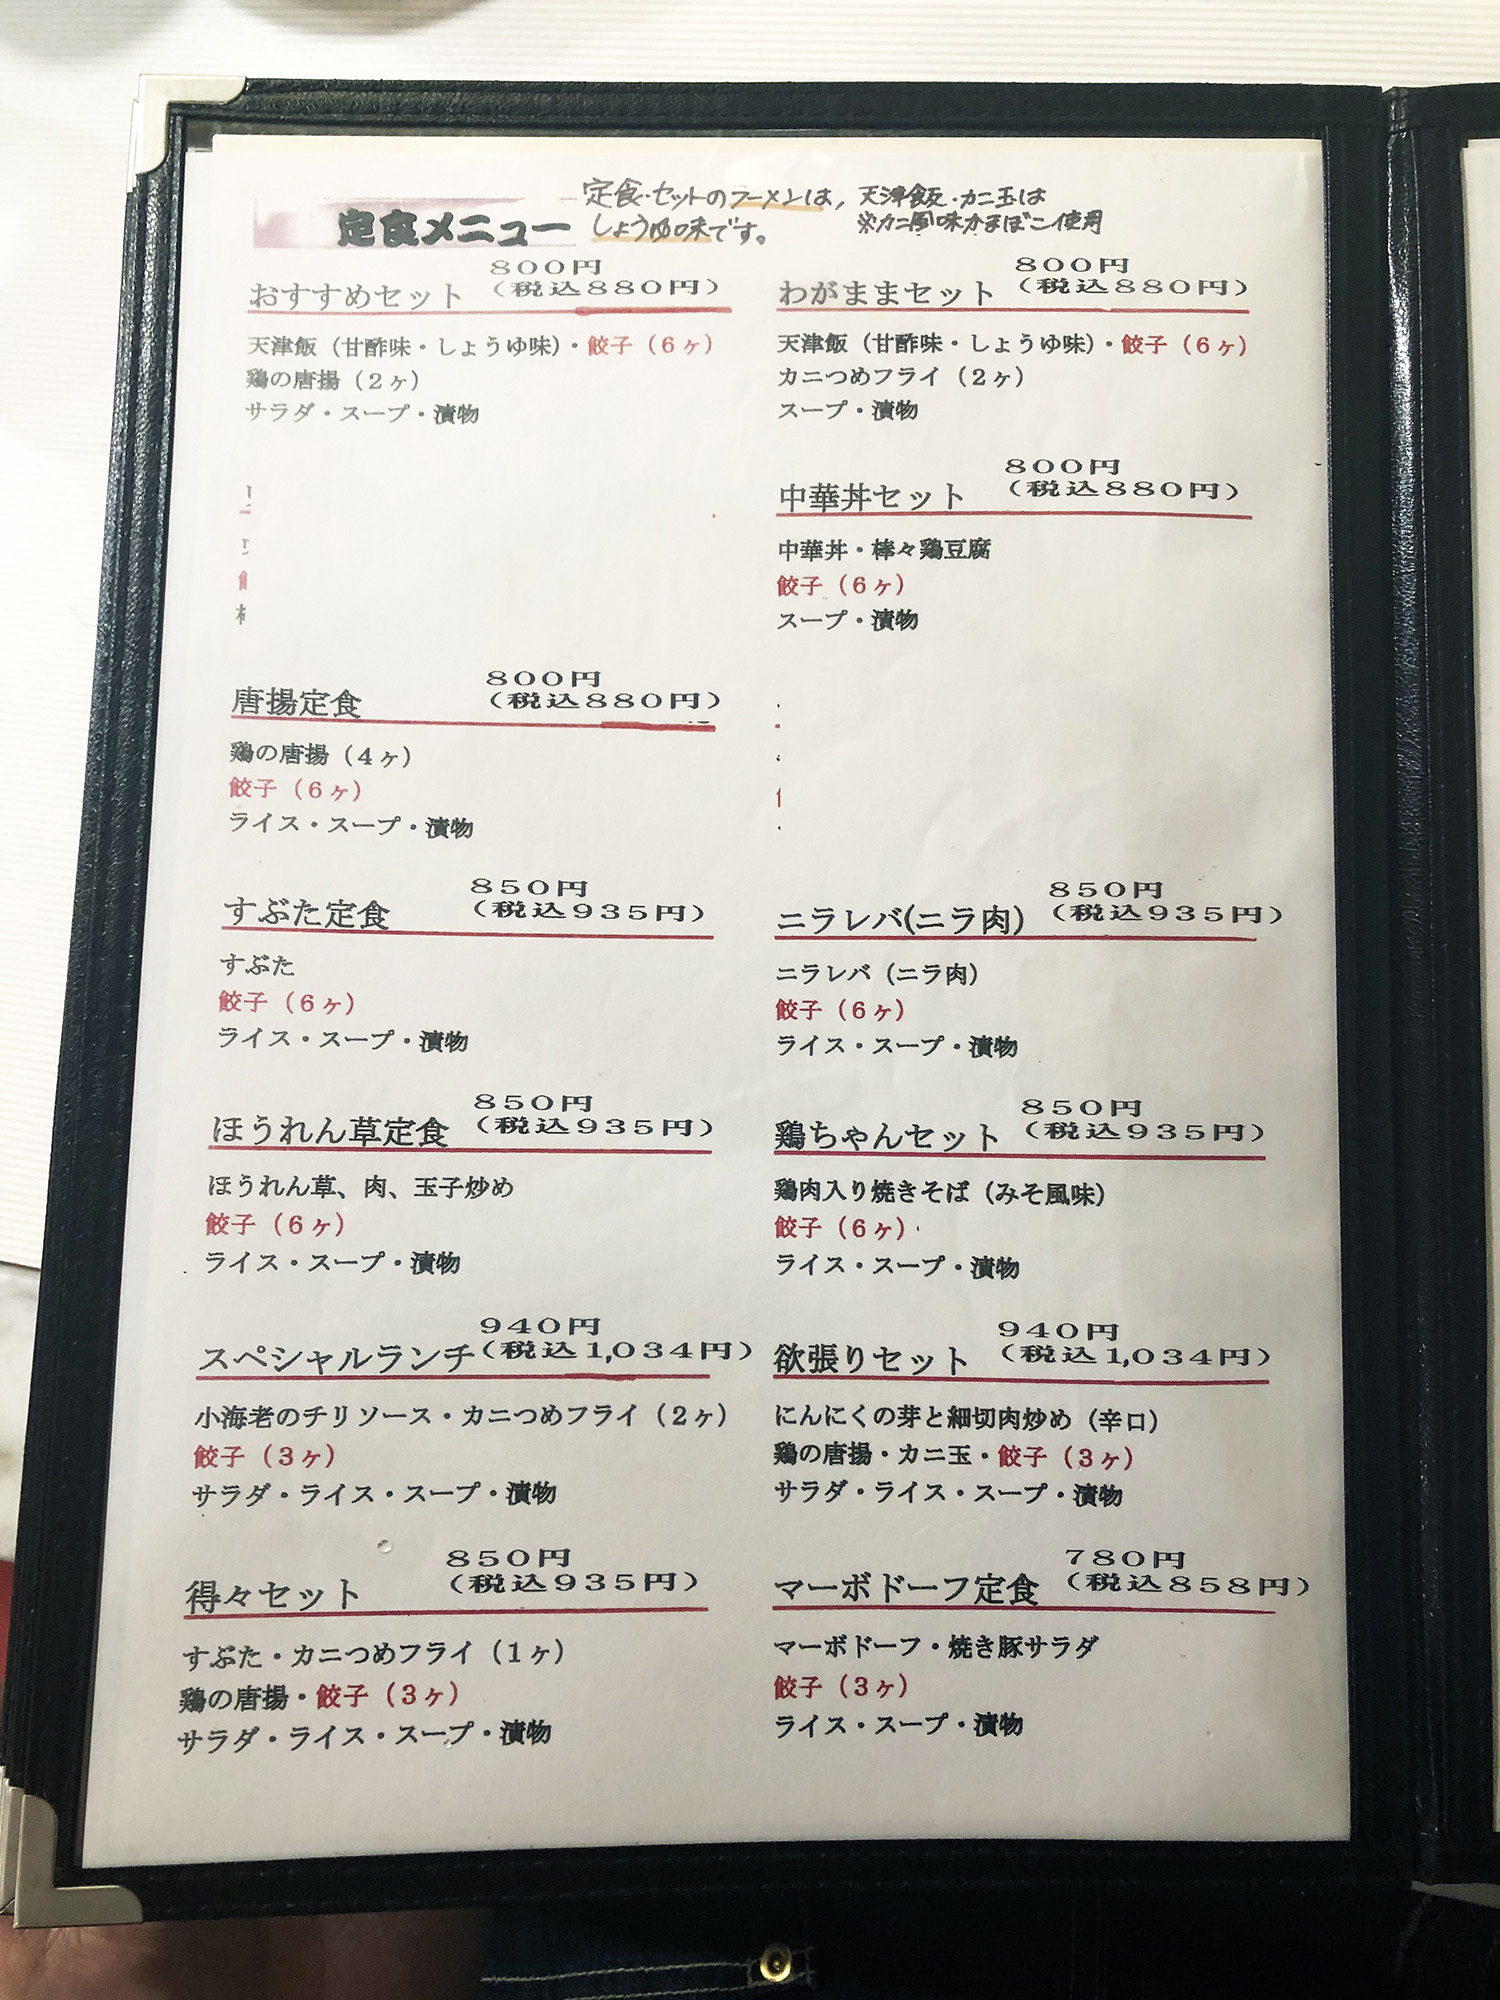 定食メニュー
定食・セットのラーメンは、
しょうゆ味です。
天津飯・カニ玉は
※カニ風味かまぼこ使用
おすすめセット
800円
(税込880円)
天津飯（甘酢味・しょうゆ味）・餃子（6ヶ）
鶏の唐揚（2ヶ）
サラダ・スープ・漬物
わがままセット
800円
(税込880円)
天津飯（甘酢味・しょうゆ味）・餃子（6ヶ）
カニつめフライ（2ヶ）
スープ・漬物
中華丼セット
800円
(税込880円)
中華丼・棒々鶏豆腐
餃子（6ヶ）
スープ・漬物
唐揚定食
800円
(税込880円)
鶏の唐揚（4ヶ）
餃子（6ヶ）
ライス・スープ・漬物
すぶた定食
850円
(税込935円)
すぶた
餃子（6ヶ）
ライス・スープ・漬物
ニラレバ(ニラ肉)
850円
(税込935円)
ニラレバ（ニラ肉）
餃子（6ヶ）
ライス・スープ・漬物
ほうれん草定食
850円
(税込935円)
ほうれん草、肉、玉子炒め
餃子（6ヶ）
ライス・スープ・漬物
鶏ちゃんセット
850円
(税込935円)
鶏肉入り焼きそば（みそ風味）
餃子（6ヶ）
ライス・スープ・漬物
スペシャルランチ
940円
(税込1,034円)
小海老のチリソース・カニつめフライ（2ヶ）
餃子（3ヶ）
サラダ・ライス・スープ・漬物
欲張りセット
940円
(税込1,034円)
にんにくの芽と細切肉炒め（辛口）
鶏の唐揚・カニ玉・餃子（3ヶ）
サラダ・ライス・スープ・漬物
得々セット
850円
(税込935円)
すぶた・カニつめフライ（1ヶ）
鶏の唐揚・餃子（3ヶ）
サラダ・ライス・スープ・漬物
マーボドーフ定食
780円
(税込858円)
マーボドーフ・焼き豚サラダ
餃子（3ヶ）
ライス・スープ・漬物